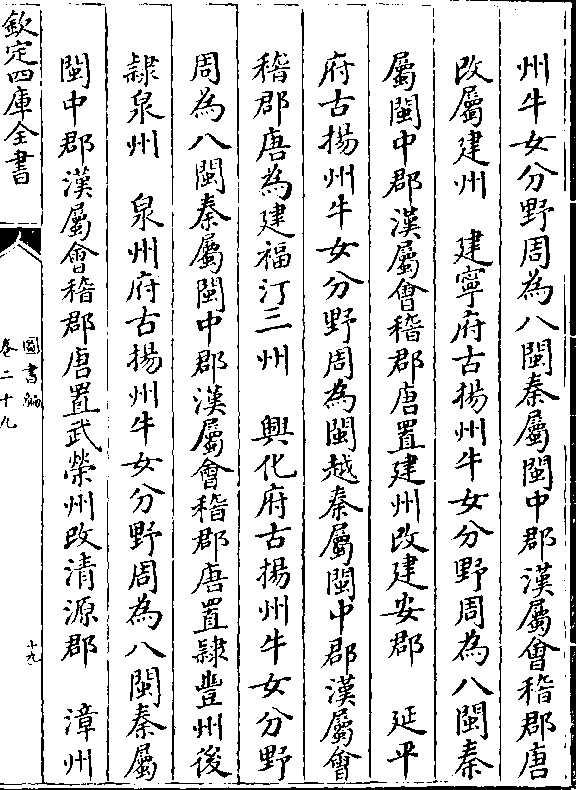 州牛女分野周為八閩秦屬閩中郡漢屬會稽郡唐
改屬建州　建寧府古揚州牛女分野周為八閩秦
屬閩中郡漢屬會稽郡唐置建州改建安郡　延平
府古揚州牛女分野周為閩越秦屬閩中郡漢屬會
稽郡唐為建福汀三州　興化府古揚州牛女分野
周為八閩秦屬閩中郡漢屬會稽郡唐置隸豐州後
隸泉州　泉州府古揚州牛女分野周為八閩秦屬
閩中郡漢屬會稽郡唐置武榮州改清源郡　漳州
欽定四庫全書
圖書編
卷二十九
十九